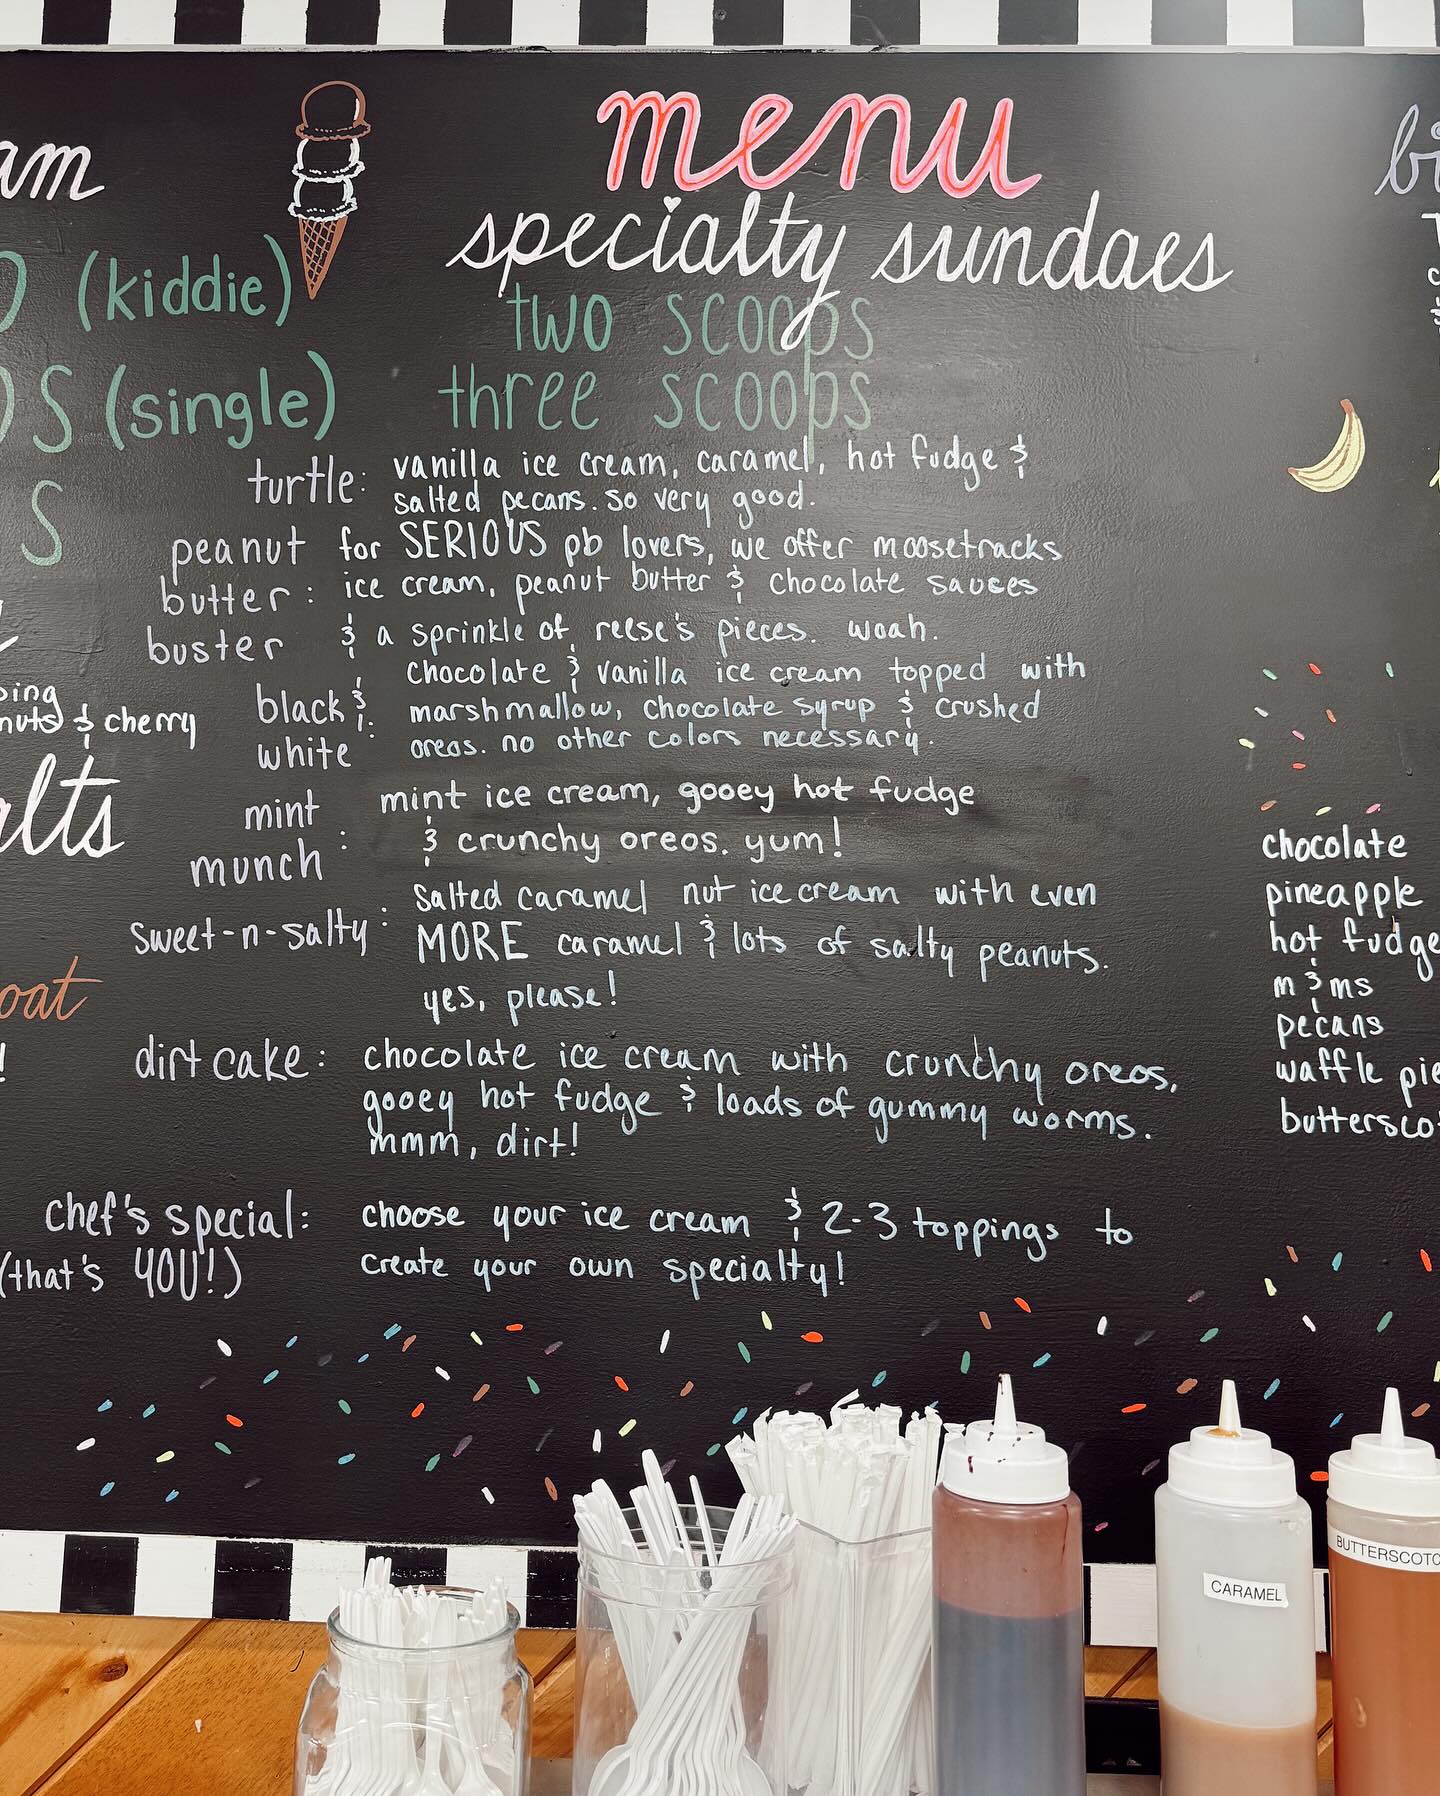 menu
specialty sundaes
two scoops
three scoops
(kiddie)
(single)
turtle: vanilla ice cream, caramel, hot fudge &
salted pecans. so very good.
peanut butter buster: for SERIOUS pb lovers, we offer moosetracks
ice cream, peanut butter & chocolate sauces
& a sprinkle of reese's pieces. woah.
black & white: chocolate & vanilla ice cream topped with
marshmallow, chocolate syrup & crushed
oreos. no other colors necessary.
mint munch: mint ice cream, gooey hot fudge
& crunchy oreos. yum!
sweet-n-salty: salted caramel nut ice cream with even
MORE caramel & lots of salty peanuts.
yes, please!
dirt cake: chocolate ice cream with crunchy oreos,
gooey hot fudge & loads of gummy worms.
mmm, dirt!
chef's special: choose your ice cream & 2-3 toppings to
(that's YOU!) create your own specialty!
& cherry
chocolate
pineapple
hot fudge
m & ms
pecans
waffle
CARAMEL